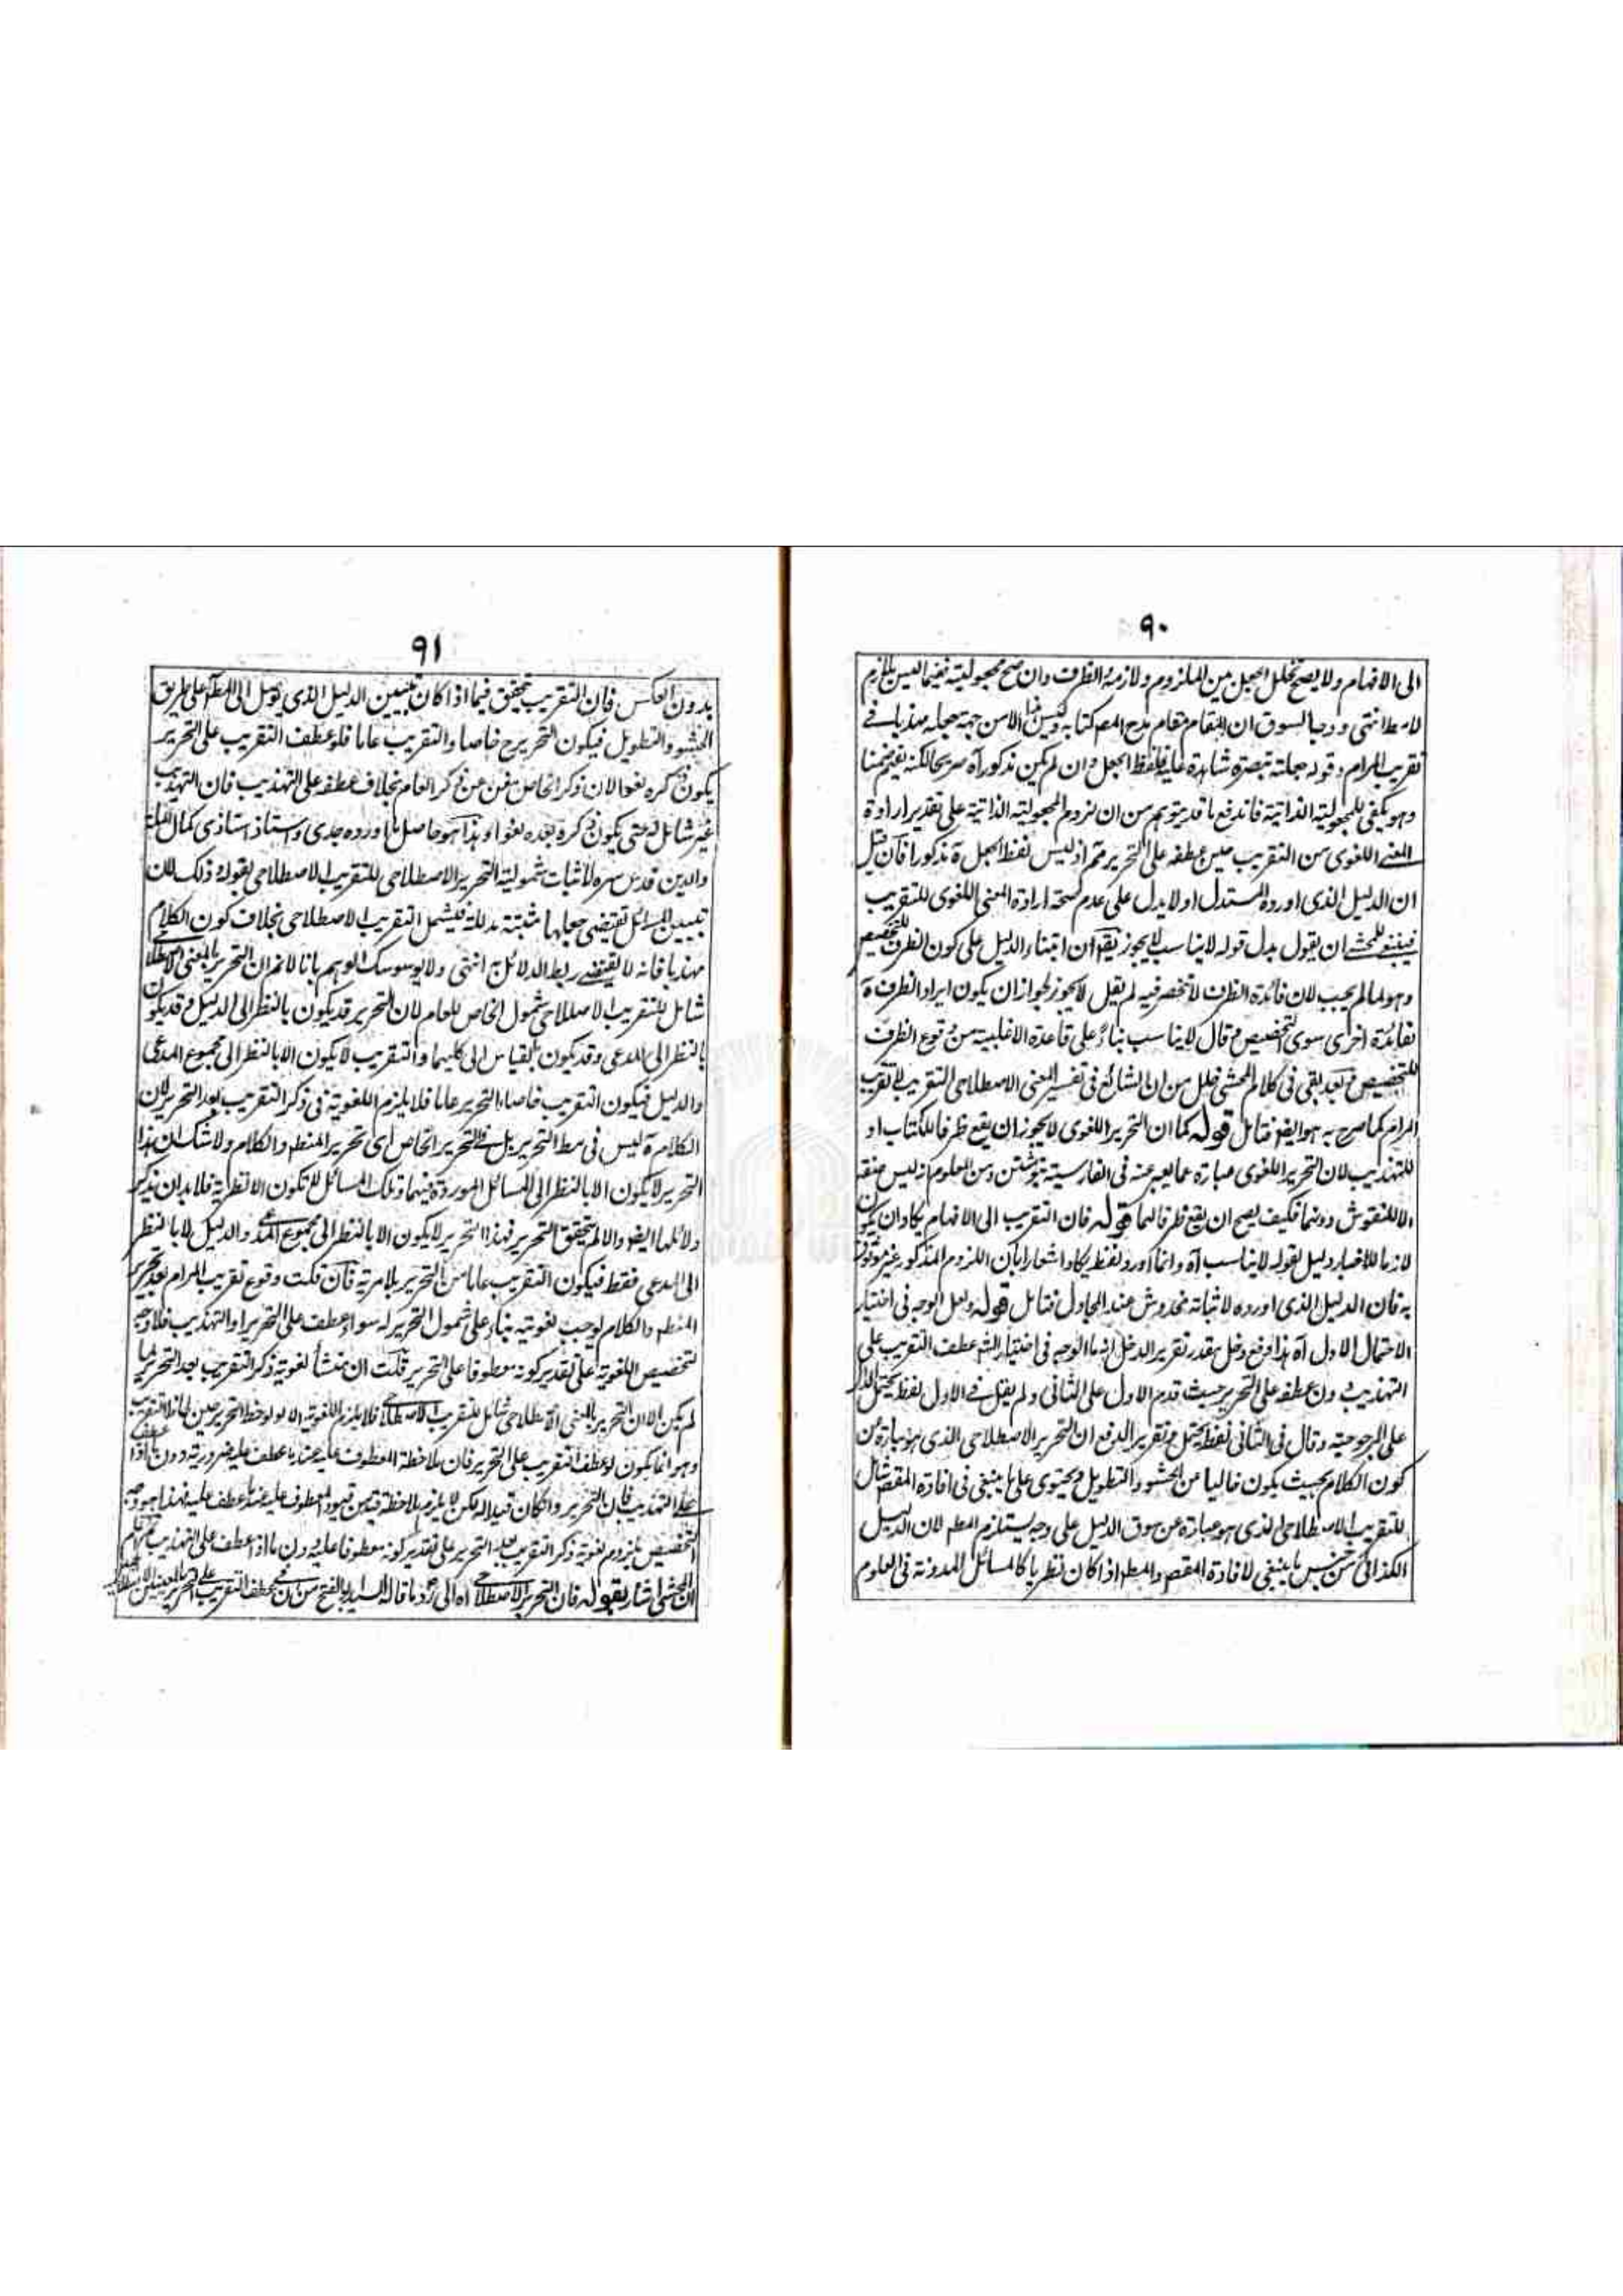 ٩٠
الى الافهام ولا يصح تخلل الجعل بين الملزوم ولازمه الظرف وان صح مجعوليته فيما ليس بلازم
لامط انتهى ووجه السوق ان المقام مقام مدح المص كتابه وليس هذا الا من جهة جعله مهذبا فى
تقريب المرام وقوله جعلته تبصرة شاهدة عليه فلفظ الجعل وان لم يكن مذكورا صريحا لكنه يفهم ضمنا
وهو يكفى للمجعولية الذاتية فاندفع ما قد يتوهم من ان لزوم المجعولية الذاتية على تقدير ارادة
المعنى اللغوى من التقريب حين عطفه على التحرير مم اذ ليس لفظ الجعل مذكورا فآن قيل
ان الدليل الذى اورده المستدل اولا يدل على عدم صحة ارادة المعنى اللغوى للتقريب
فينبغى للمحشى ان يقول بدل قوله لايناسب لايجوز يقآ ان ابتناء الدليل على كون الظرف للتخصيص
وهو لما لم يجب لان فائدة الظرف لاتنحصر فيه لم يقل لايجوز لجواز ان يكون ايراد الظرف
لفائدة اخرى سوى التخصيص وقال لايناسب بناءً على قاعدة الاغلبية من وقوع الظرف
للتخصيص وبعد بقى فى كلام المحشى خلل من ان الشائع فى تفسير المعنى الاصطلاحى التقريب لا تقريب
المرام كما صرح به هو ايضا فتامل قوله كما ان التحرير اللغوى لايجوز ان يقع ظرفا للكتاب او
للتهذيب لان التحرير اللغوى عبارة عما يعبر عنه فى الفارسية بنوشتن ومن المعلوم انه ليس صفة
الا للنقوش دونهما فكيف يصح ان يقع ظرفا لهما قوله فان التقريب الى الافهام يكاد ان يكون
لازما للاخبار دليل لقوله لايناسب آه وانما اورد لفظ يكاد اشعارا بان اللزوم المذكور غير موثوق
به فان الدليل الذى اورده لاثباته مخدوش عند المجادل فتامل قوله ولعل الوجه فى اختيار
الاحتمال الاول آه هذا دفع دخل مقدر تقرير الدخل انه ما الوجه فى اختيار الشه عطف التقريب على
التهذيب دون عطفه على التحرير حيث قدم الاول على الثانى ولم يقل فى الاول لفظ يحتمل الدال
على المرجوحية وقال فى الثانى لفظ يحتمل وتقرير الدفع ان التحرير الاصطلاحى الذى هو عبارة عن
كون الكلام بحيث يكون خاليا من الحشو والتطويل ويحتوى على ما ينبغى فى افادة المقصد شامل
للتقريب الاصطلاحى الذى هو عبارة عن سوق الدليل على وجه يستلزم المط لان الدليل
الكذائى من جنس ما ينبغى لافادة المقصد والمط اذا كان نظريا كالمسائل المدونة فى العلوم
٩١
بدون العكس فان التقريب يتحقق فيما اذا كان تبيين الدليل الذى يوصل الى المط على طريق
الحشو والتطويل فيكون التحرير ح خاصا والتقريب عاما فلو عطف التقريب على التحرير
يكون ذكره لغوا لان ذكر الخاص مغن عن ذكر العام بخلاف عطفه على التهذيب فان التهذيب
غير شامل له حتى يكون ذكره بعده لغوا وهذا هو حاصل ما اورده جدى واستاذ استاذى كمال الملة
والدين قدس سره لاثبات شمولية التحرير الاصطلاحى للتقريب الاصطلاحى بقوله وذلك لان
تبيين المسائل تقتضى جعلها مثبتة بدلالة فيشمل التقريب الاصطلاحى بخلاف كون الكلام
مهذبا فانه لا يقتضى ربط الدلائل به انتهى ولا يوسوسك الوهم بانا لانم ان التحرير بالمعنى الاصطلاحى
شامل للتقريب الاصطلاحى شمول الخاص للعام لان التحرير قد يكون بالنظر الى الدليل وقد يكون
بالنظر الى المدعى وقد يكون بالقياس الى كليهما والتقريب لا يكون الا بالنظر الى مجموع المدعى
والدليل فيكون التقريب خاصا والتحرير عاما فلا يلزم اللغوية فى ذكر التقريب بعد التحرير لان
الكلام ليس فى مط التحرير بل فى التحرير الخاص اى تحرير المنطق والكلام ولاشك ان هذا
التحرير لا يكون الا بالنظر الى المسائل الموردة فيهما وتلك المسائل لا تكون الا نظرية فلا بد ان يذكر
دلائلها ايضا والا لم يتحقق التحرير فهذا التحرير لا يكون الا بالنظر الى مجموع المدعى والدليل لا بالنظر
الى المدعى فقط فيكون التقريب عاما من التحرير بلا مرية فآن قلت وقوع تقريب المرام بعد تحرير
المنطق والكلام يوجب لغويته بناء على شمول التحرير له سواء عطف على التحرير او التهذيب فلا وجه
لتخصيص اللغوية على تقدير كونه معطوفا على التحرير قلت ان منشأ لغوية ذكر التقريب بعد التحرير لما
لم يكن الا ان التحرير بالمعنى الاصطلاحى شامل للتقريب الاصطلاحى فلا يلزم اللغوية الا لو لوحظ التحرير حين لحاظ التقريب
وهو انما يكون لو عطف التقريب على التحرير فان ملاحظة المعطوف عليه عند ما عطف عليه ضرورية دون ما اذا عطف
على التهذيب فان التحرير وان كان قيدا له لكن لا يلزم ملاحظة قيد من قيود المعطوف عليه عند ما عطف عليه فهذا هو وجه
التخصيص بلزوم لغوية ذكر التقريب بعد التحرير على تقدير كونه معطوفا عليه دون ما اذا عطف على التهذيب ثم اعلم
ان المحشى اشار بقوله فان التحرير الاصطلاحى آه الى رد ما قال السيد ابو الفتح من ان فى عطف التقريب على التحرير